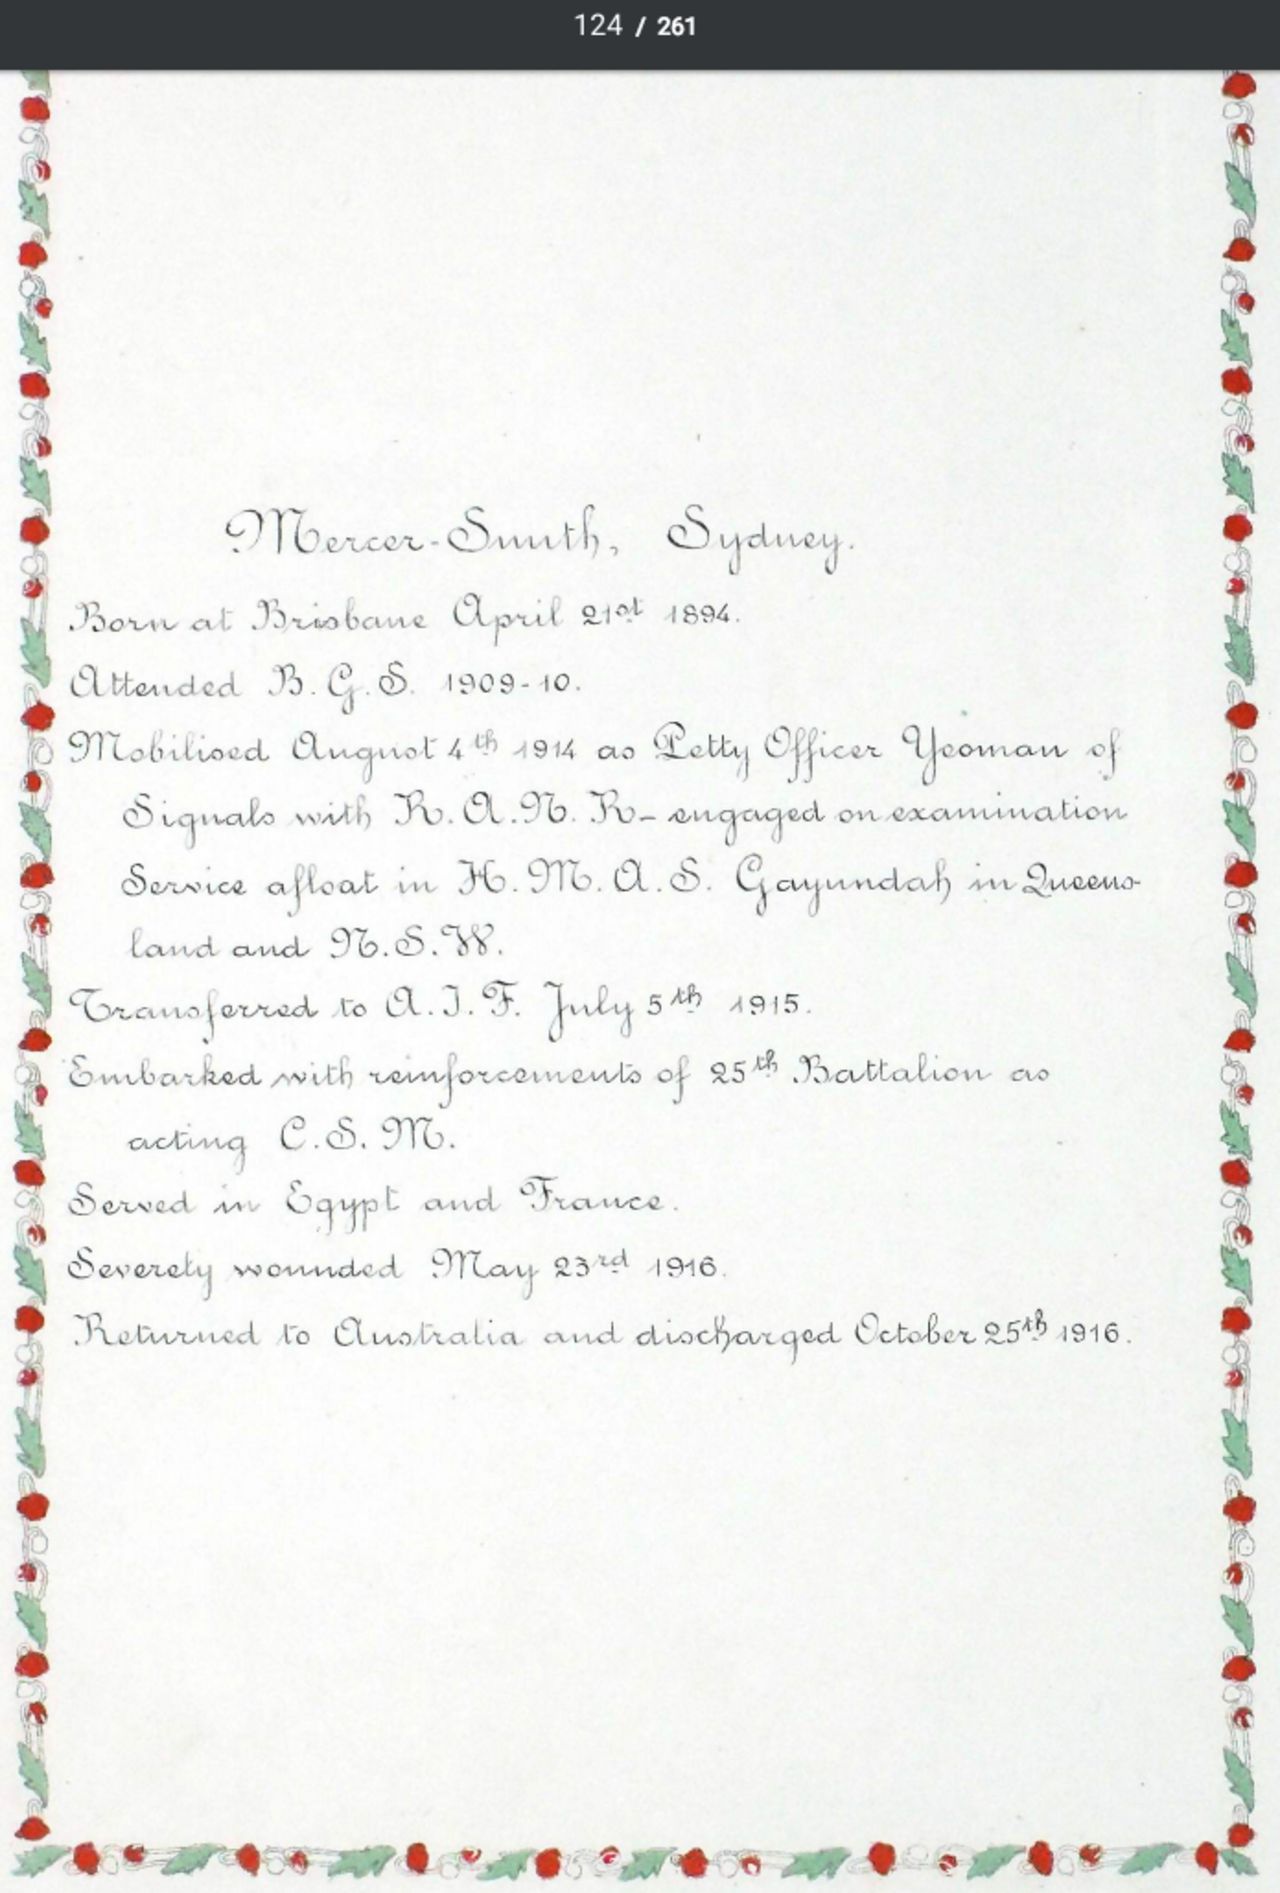 124 / 261
Mercer-Smith, Sydney.
Born at Brisbane April 21st 1894.
Attended B. G. S. 1909-10.
Mobilised August 4th 1914 as Petty Officer Yeoman of
Signals with R. A. N. R- engaged on examination
Service afloat in H. M. A. S. Gayundah in Queens-
land and N. S. W.
Transferred to A. I. F. July 5th 1915.
Embarked with reinforcements of 25th Battalion as
acting C. S. M.
Served in Egypt and France.
Severely wounded May 23rd 1916.
Returned to Australia and discharged October 25th 1916.